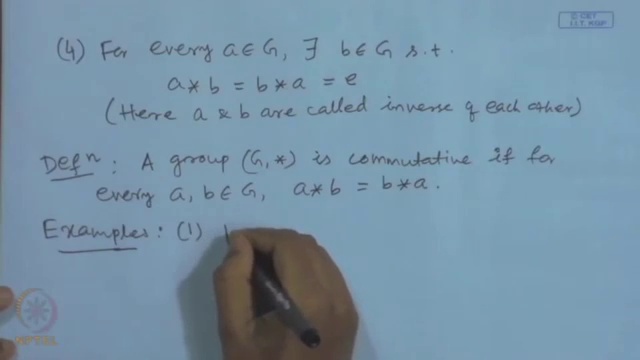 © CET
I.I.T. KGP
(4) For every a ∈ G, ∃ b ∈ G s.t.
a * b = b * a = e
(Here a & b are called inverse of each other)
Defⁿ : A group (G, *) is commutative if for
every a, b ∈ G, a * b = b * a.
Examples : (1)
NPTEL